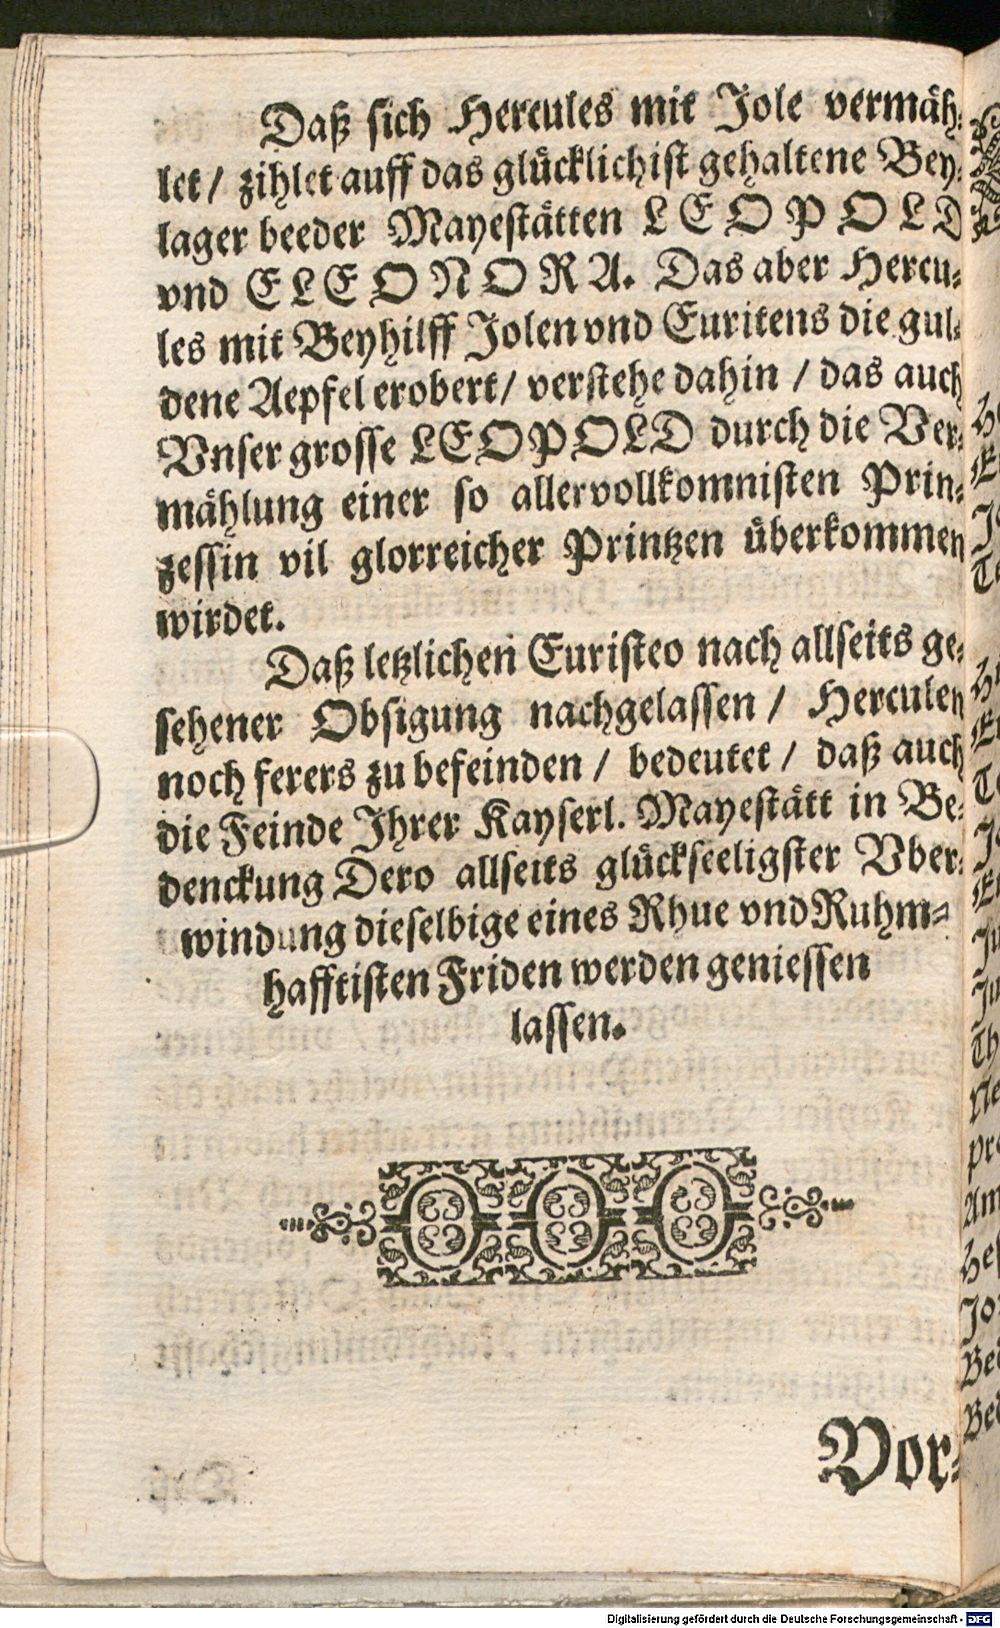 Daß sich Hercules mit Jole vermäh-
let / zihlet auff das glücklichist gehaltene Bey-
lager beeder Mayestätten LEOPOLD
vnd ELEONORA. Das aber Hercu-
les mit Beyhilff Jolen vnd Euritens die gul-
dene Aepfel erobert / verstehe dahin / das auch
Vnser grosse LEOPOLD durch die Ver-
mählung einer so allervollkomnisten Prin-
zessin vil glorreicher Printzen überkommen
wirdet.
Daß letzlichen Euristeo nach allseits ge-
sehener Obsigung nachgelassen / Herculen
noch ferers zu befeinden / bedeutet / daß auch
die Feinde Ihrer Kayserl. Mayestätt in Be-
denckung Dero allseits glückseeligster Vber-
windung dieselbige eines Rhue vnd Ruhm-
hafftisten Friden werden geniessen
lassen.
Vor-
Digitalisierung gefördert durch die Deutsche Forschungsgemeinschaft - DFG